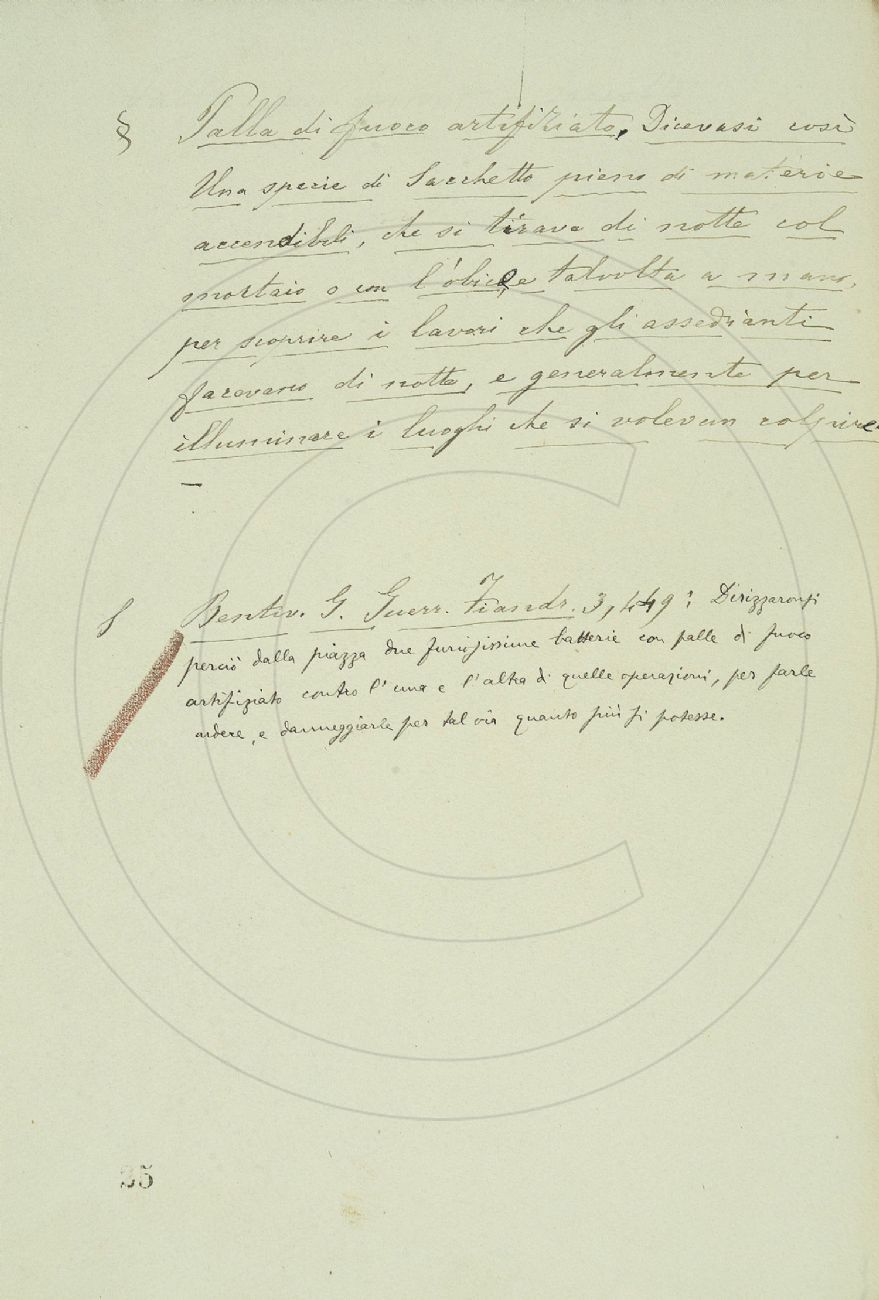 § Palla di fuoco artifiziato, Dicevasi così
Una specie di Sacchetto pieno di materie
accendibili, che si tirava di notte col
mortaio o con l'obice, e talvolta a mano,
per scoprire i lavori che gli assedianti
facevano di notte, e generalmente per
illuminare i luoghi che si volevan colpire.
—
Bentiv. G. Guerr. Fiandr. 3, 449: Dirizzaronsi
perciò dalla piazza due furiosissime batterie con palle di fuoco
artifiziato contro l'una e l'altra di quelle operazioni, per farle
ardere, e danneggiarle per tal via quanto più si potesse.
35